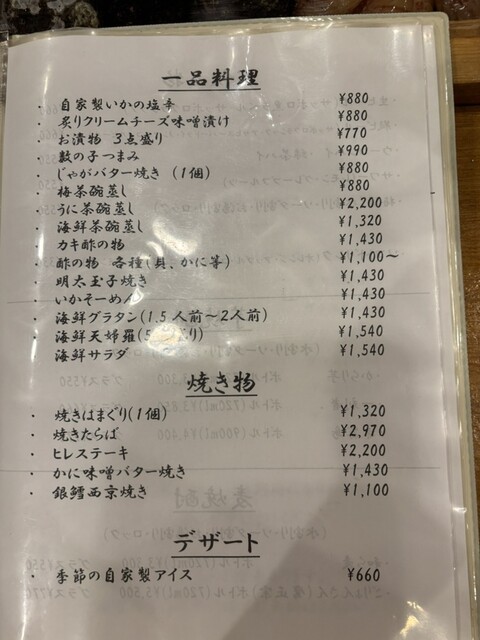 一品料理
・ 自家製いかの塩辛 ¥880
・ 炙りクリームチーズ味噌漬け ¥880
・ お漬物 3点盛り ¥770
・ 数の子つまみ ¥990
・ じゃがバター焼き (1個) ¥880
・ 梅茶碗蒸し ¥880
・ うに茶碗蒸し ¥2,200
・ 海鮮茶碗蒸し ¥1,320
・ カキ酢の物 ¥1,430
・ 酢の物 各種(貝、かに等) ¥1,100～
・ 明太玉子焼き ¥1,430
・ いかそーめん ¥1,430
・ 海鮮グラタン(1.5人前～2人前) ¥1,430
・ 海鮮天婦羅 ¥1,540
・ 海鮮サラダ ¥1,540
焼き物
・ 焼きはまぐり(1個) ¥1,320
・ 焼きたらば ¥2,970
・ ヒレステーキ ¥2,200
・ かに味噌バター焼き ¥1,430
・ 銀鱈西京焼き ¥1,100
デザート
・ 季節の自家製アイス ¥660